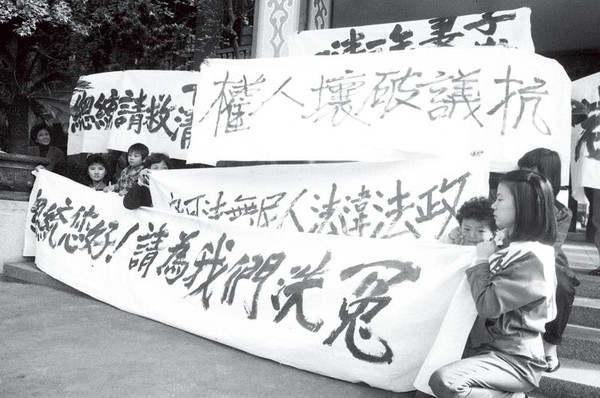 總統請救
抗議破壞人權
政法違法人民無法
總統您好！請為我們洗冤